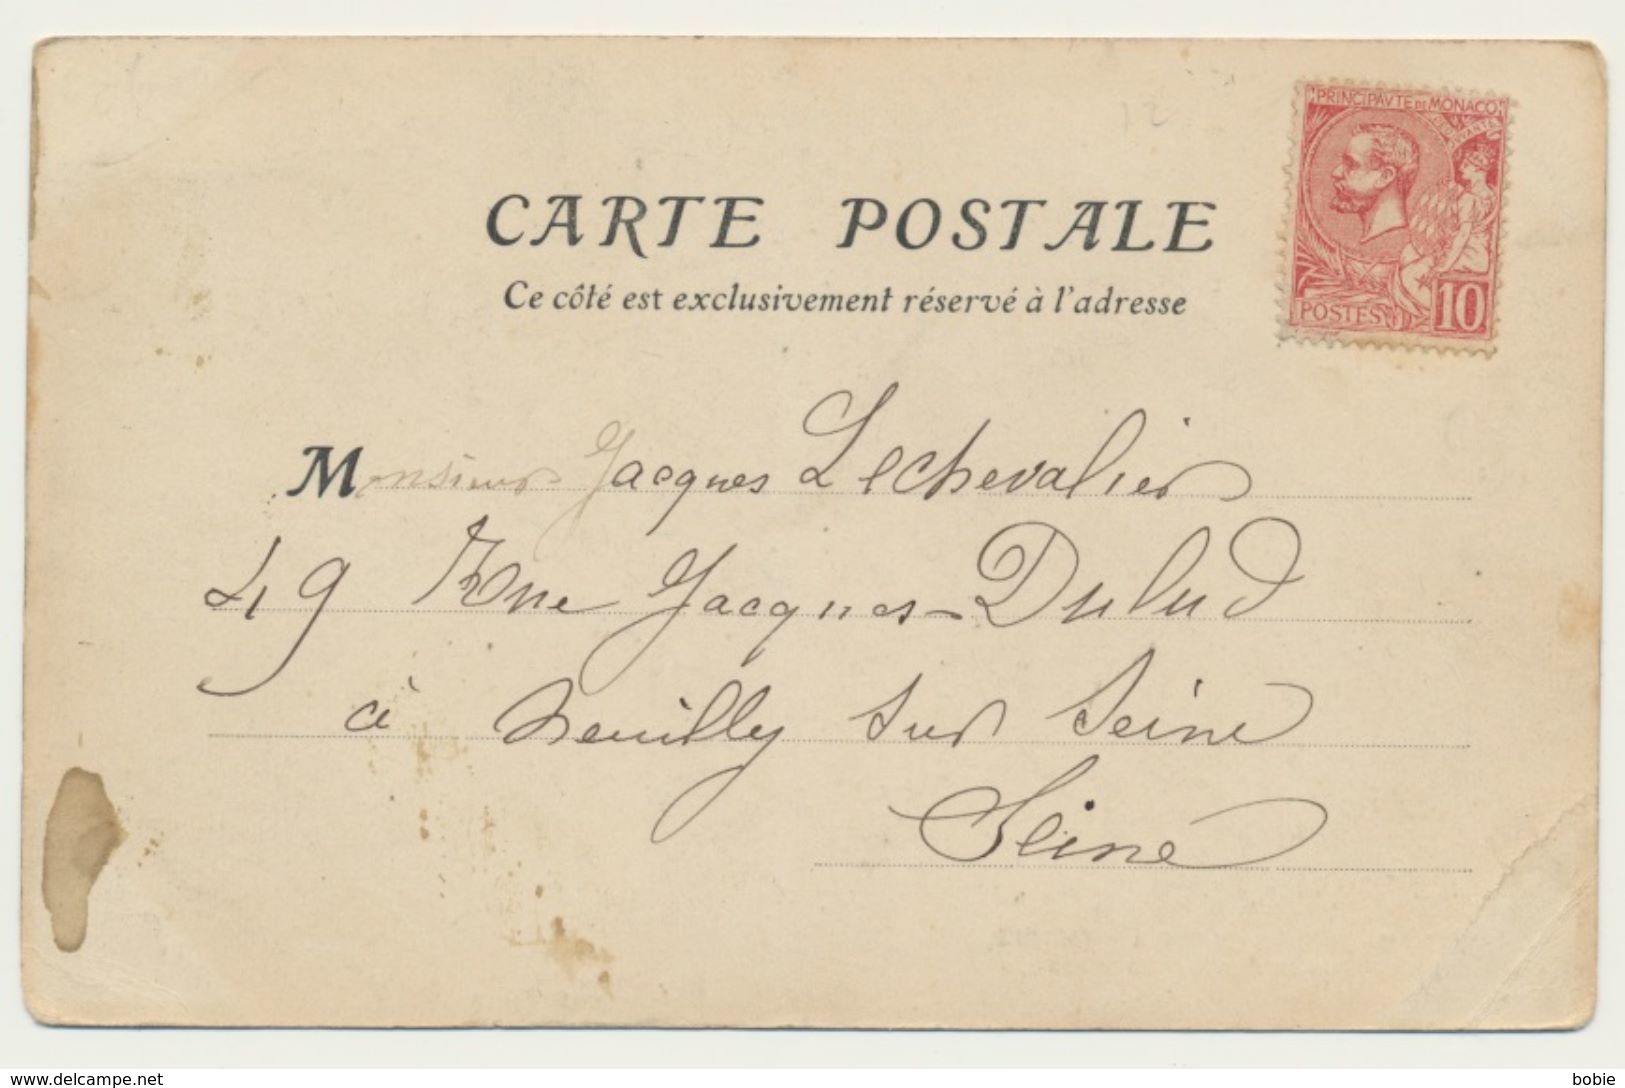 12
PRINCIPAVTE DE MONACO
POSTES 10
CARTE POSTALE
Ce côté est exclusivement réservé à l'adresse
Monsieur Jacques Lechevalier
49 Rue Jacques-Dulud
à Neuilly sur Seine
Seine
www.delcampe.net
bobie